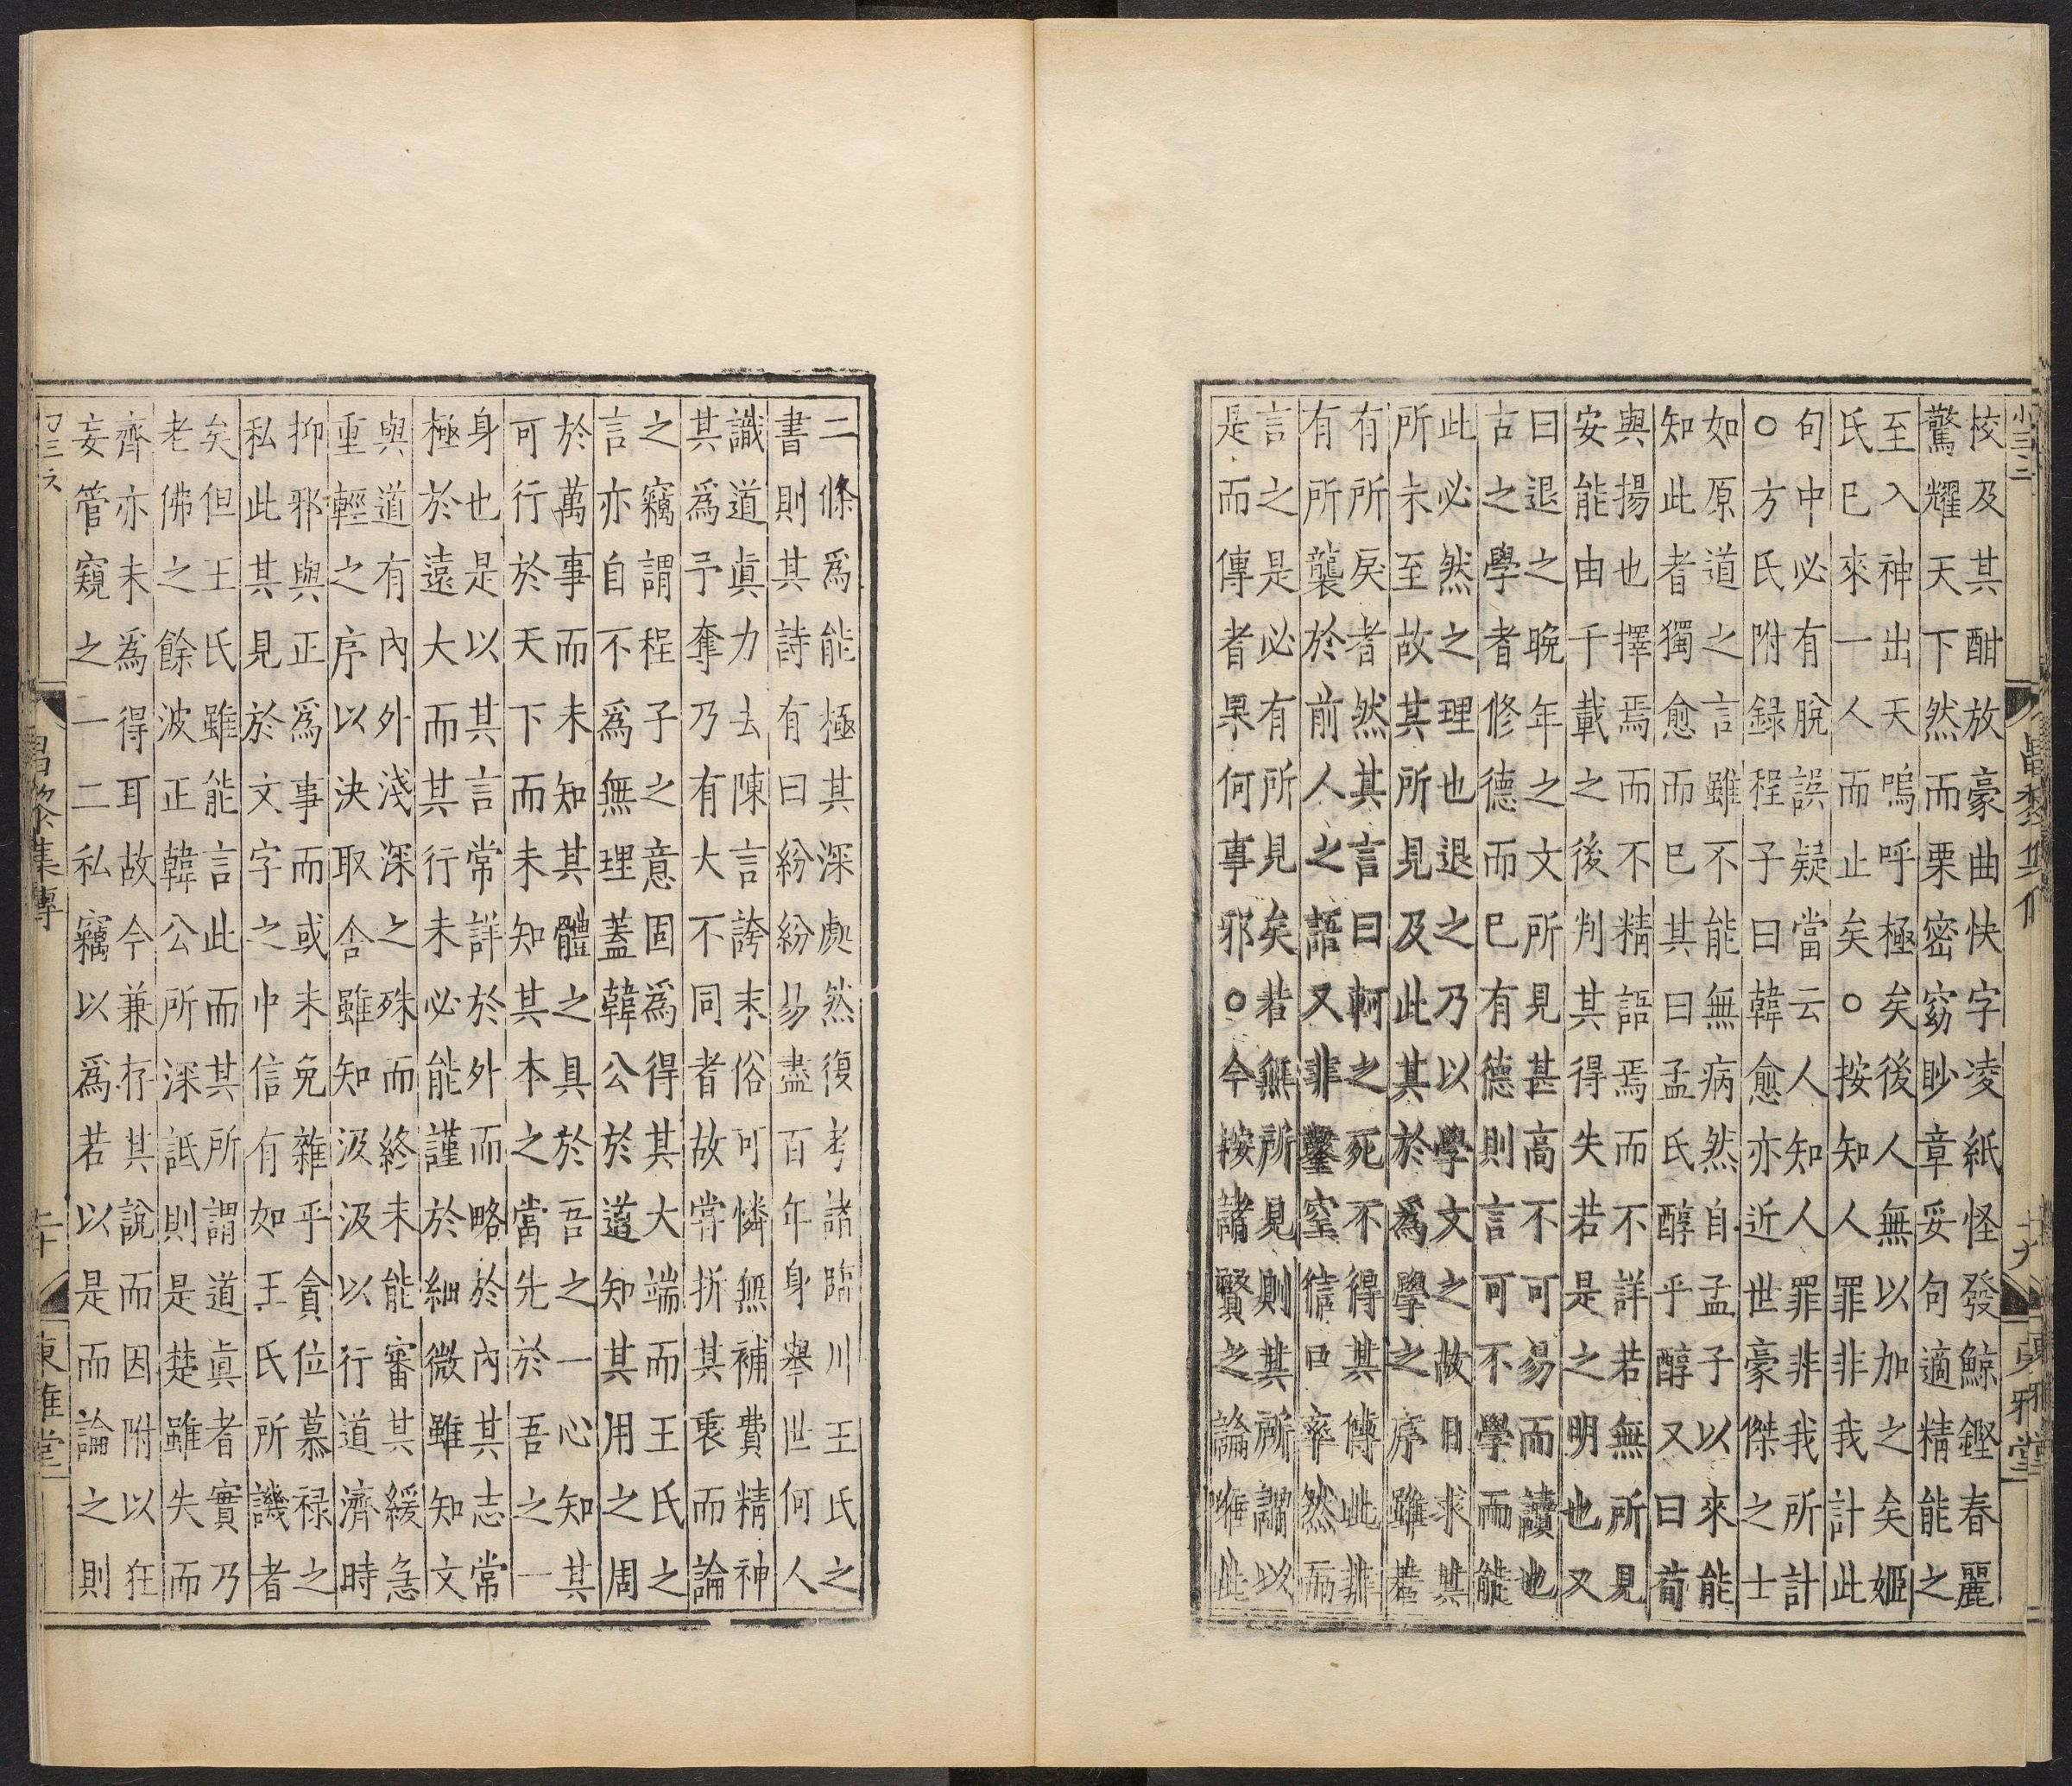 校及其酣放豪曲快字凌紙怪發鯨鏗春麗
驚耀天下然而栗密窈眇章妥句適精能之
至入神出天嗚呼極矣後人無以加之矣姬
氏已來一人而止矣○按知人罪非我計此
句中必有脫誤疑當云人知人罪非我所計
○方氏附録程子曰韓愈亦近世豪傑之士
如原道之言雖不能無病然自孟子以來能
知此者獨愈而已其曰孟氏醇乎醇又曰荀
與揚也擇焉而不精語焉而不詳若無所見
安能由千載之後判其得失若是之明也又
曰退之晩年之文所見甚高不可易而讀也
古之學者修德而已有德則言可不學而能
此必然之理也退之乃以學文之故日求其
所未至故其所見及此其於爲學之序雖若
有所戾者然其言曰軻之死不得其傳此非
有所襲於前人之語又非鑿空信口率然而
言之是必有所見矣若無所見則其所謂以
是而傳者果何事邪○今按諸賢之論唯此
小三二
昌黎集傳
十九
東雅堂
二條爲能極其深處然復考諸臨川王氏之
書則其詩有曰紛紛易盡百年身舉世何人
識道眞力去陳言誇末俗可憐無補費精神
其爲予奪乃有大不同者故嘗折其衷而論
之竊謂程子之意固爲得其大端而王氏之
言亦自不爲無理蓋韓公於道知其用之周
於萬事而未知其體之具於吾之一心知其
可行於天下而未知其本之當先於吾之一
身也是以其言常詳於外而略於內其志常
極於遠大而其行未必能謹於細微雖知文
與道有內外淺深之殊而終未能審其緩急
重輕之序以決取舍雖知汲汲以行道濟時
抑邪與正爲事而或未免雜乎貪位慕禄之
私此其見於文字之中信有如王氏所譏者
矣但王氏雖能言此而其所謂道眞者實乃
老佛之餘波正韓公所深詆則是楚雖失而
齊亦未爲得耳故今兼存其說而因附以狂
妄管窺之一二私竊以爲若以是而論之則
昌黎集傳
二十
東雅堂